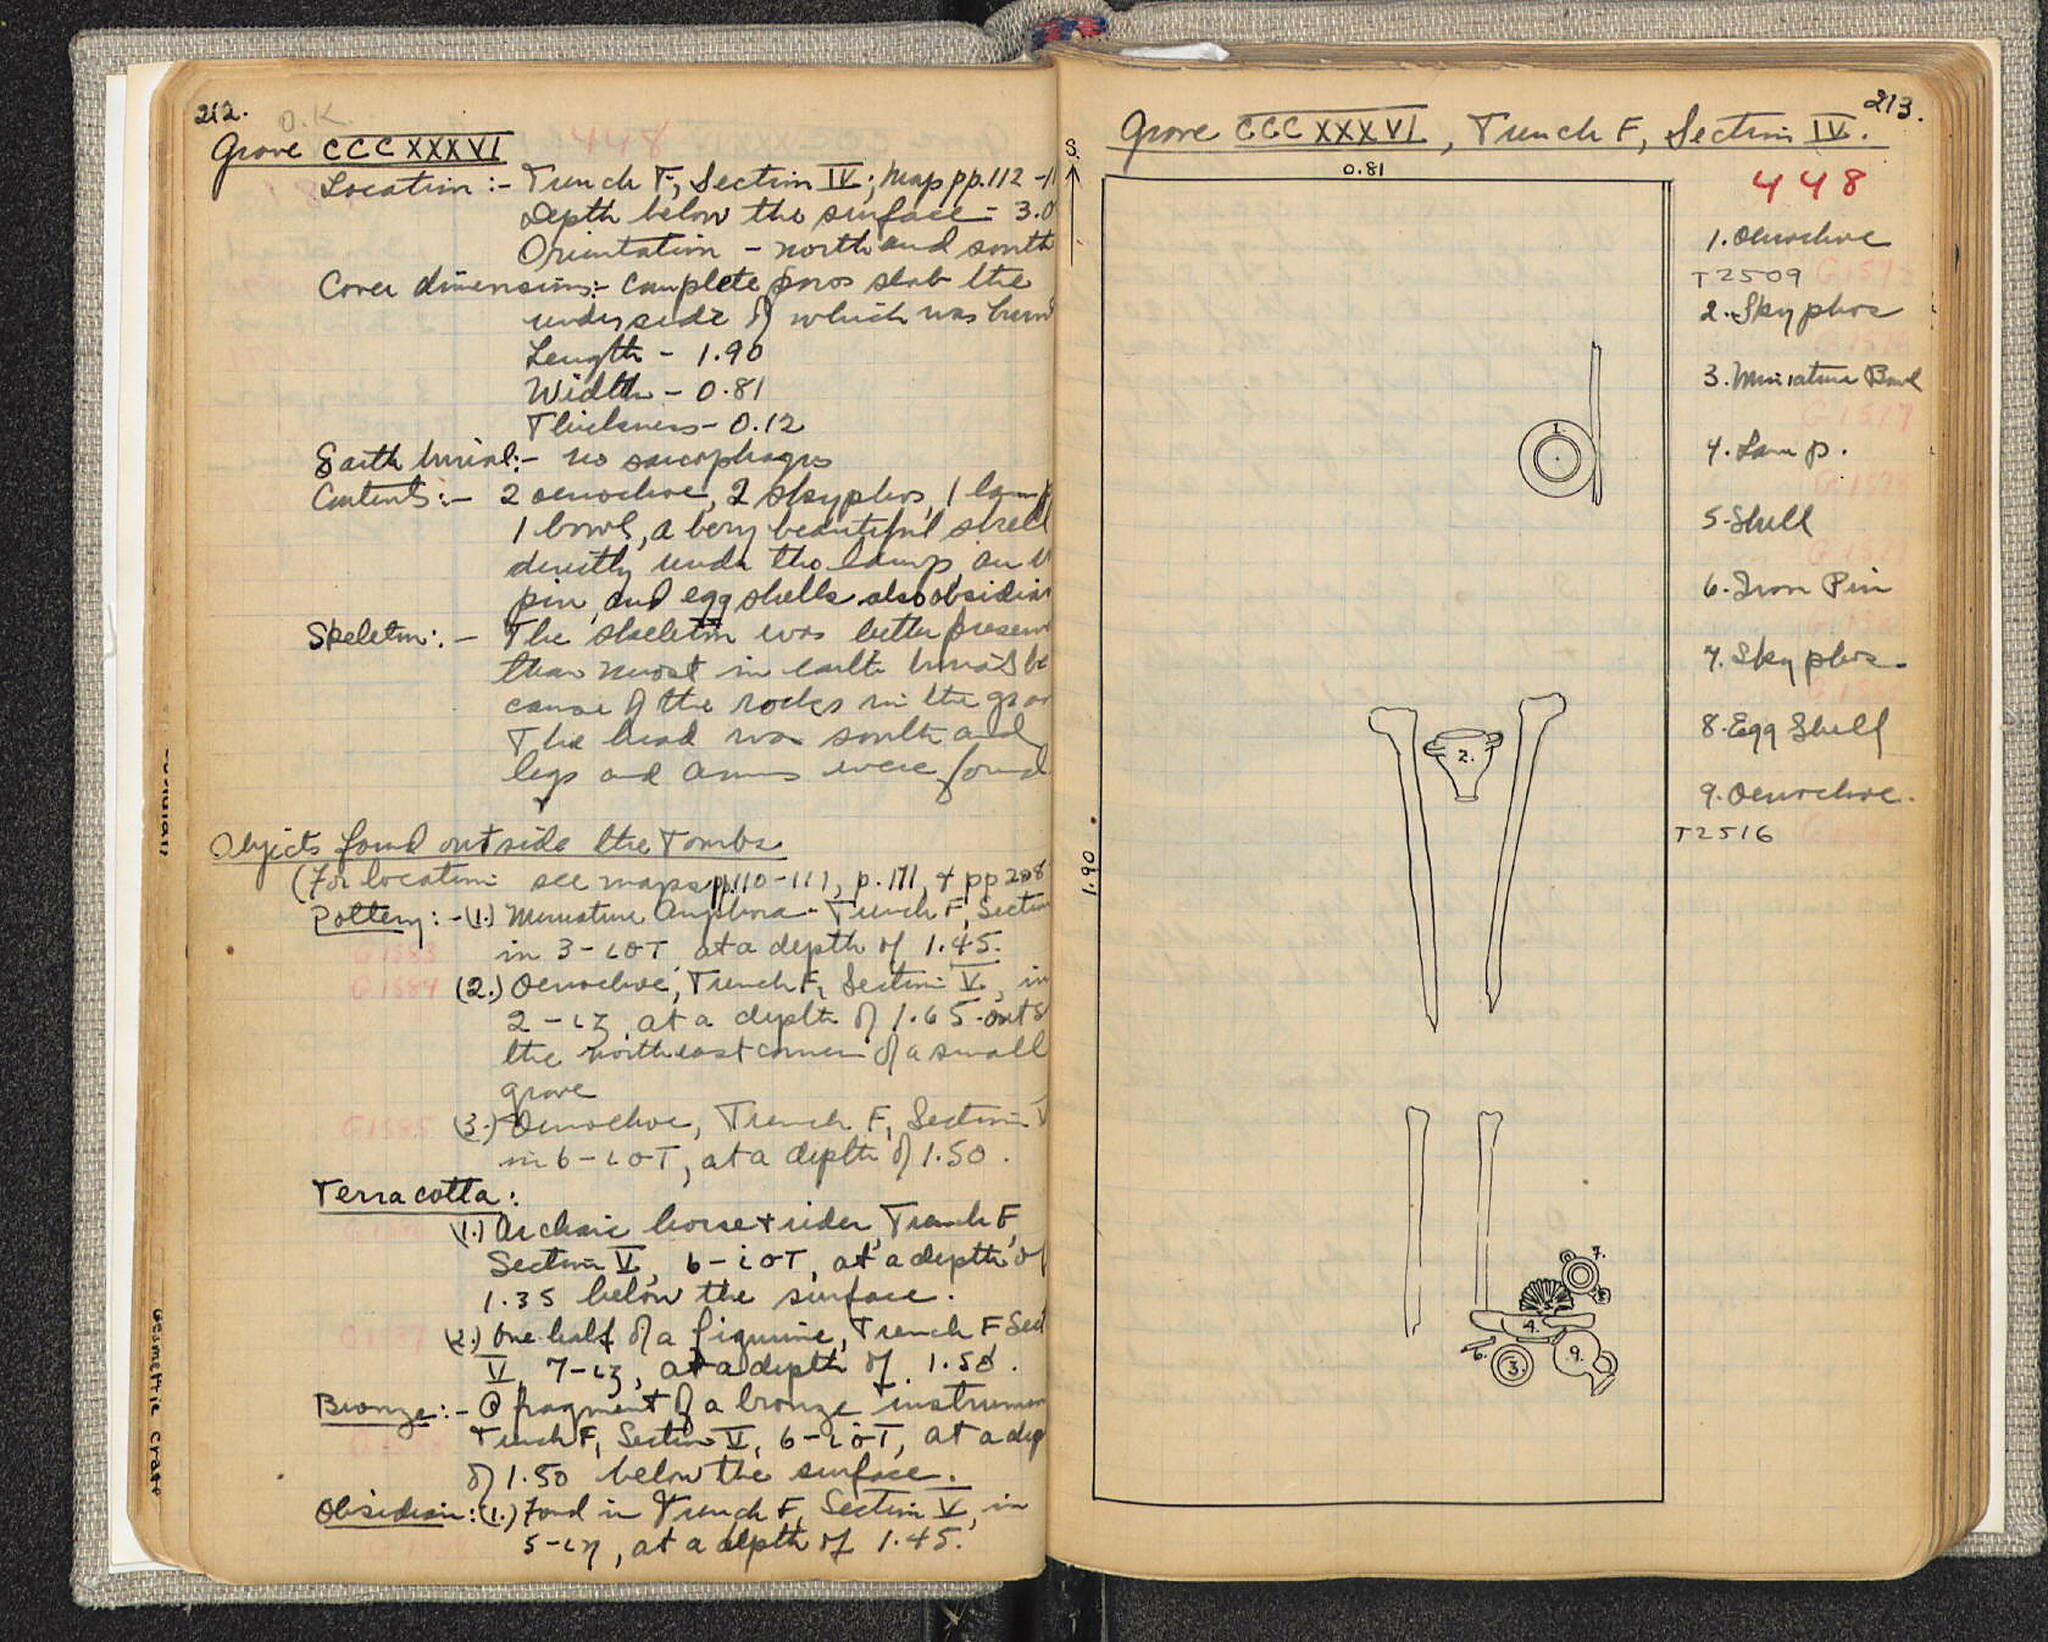 212.
O.K.
Grave CCCXXXVI
Location :- Trench F, Section IV; Map pp. 112 -11
Depth below the surface - 3.0
Orientation - north and south
Cover dimensions:- Complete poros slab the
underside of which was
Length - 1.90
Width - 0.81
Thickness - 0.12
Earth burial:- no sarcophagus
Contents:- 2 oenochoe, 2 skyphos, 1 lamp
1 bowl, a very beautiful shell
directly under the lamp, an
pin, and egg shells also obsidian
Skeleton: - The skeleton was better
than most in earth burials be
cause of the rocks in the
The head was south and
legs and arms were found
Objects found outside the Tombs
(For location see maps pp. 110-111, p. 171, + pp 208
Pottery: - (1.) Miniature Amphora - Trench F, Section
in 3 - ιοτ, at a depth of 1.45.
G 1583
G 1584
(2.) Oenochoe, Trench F, Section V, in
2 - ιζ, at a depth of 1.65 outs
the northeast corner of a small
grave
G 1585
(3.) Oenochoe, Trench F, Section V
in 6 - ιοτ, at a depth of 1.50.
Terracotta:
(1.) Archaic horse + rider, Trench F,
Section V, 6 - ιοτ, at a depth of
1.35 below the surface.
(2.) One half of a figurine, Trench F Sect
V, 7 - ιζ, at a depth of 1.50.
Bronze: - A fragment of a bronze instrumen
Trench F, Section V, 6 - ιοτ, at a dep
of 1.50 below the surface.
Obsidian: (1.) Found in Trench F, Section V, in
5 - ιη, at a depth of 1.45.
213.
Grave CCCXXXVI, Trench F, Section IV.
S.
0.81
448
1. Oenochoe
T2509
2. Skyphos
3. Miniature Bowl
4. Lamp.
5. Shell
6. Iron Pin
7. Skyphos.
8. Egg Shell
9. Oenochoe.
T2516
1.90
1.
2.
7.
8.
4.
6.
3.
9.